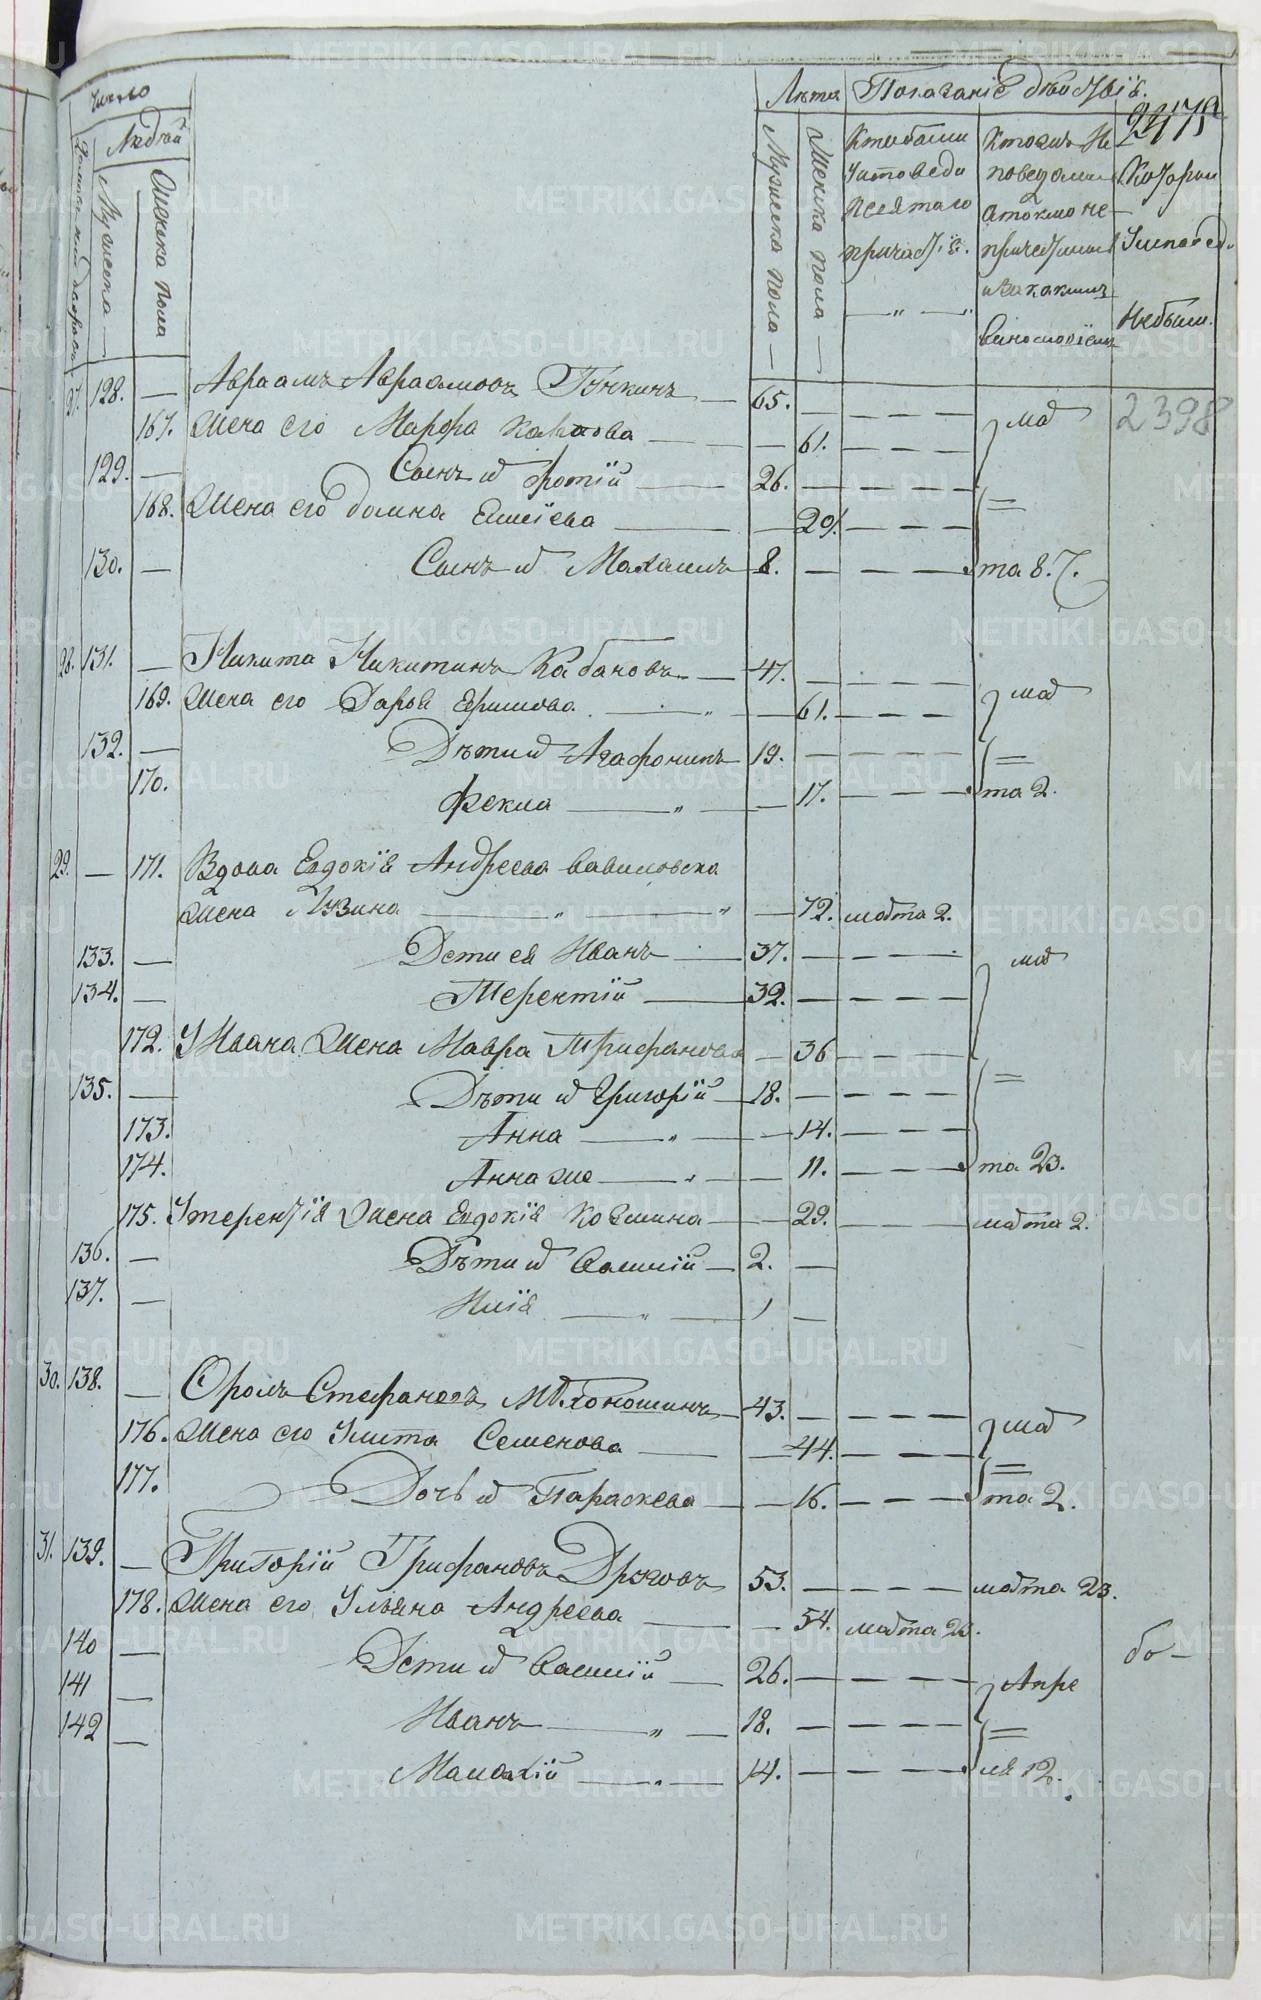 число
Людей
Мужеска
Женска пола
Лѣта
Показаніе дѣйствій.
2475
Мужеска пола
Женска пола
Кто были
Исповеди
и святаго
причастія.
Кто ... Ис
поведались
а токмо не
причастились
и за какимъ
виносло́віемъ
Которыи
Исповеди
не были.
2398
27. 128. — Авраамъ Авраамовъ 65.
167. Жена его Марфа Карпова 61.
мар
129. — Сынъ их Фотій 26.
168. Жена его Домна Елисіева 29.
130. — Сынъ их Малахия 8.
та 8. 7.
28. 131. — Никита Никитинъ Кабановъ 47.
169. Жена его Дарья Ефимова 61.
мар
132. — Дѣти их Агафоникъ 19.
170. Фекла 17.
та 2.
29. — 171. Вдова Евдокія Андреева Вавиловска
Жена Лузина 72. марта 2.
133. — Дети ея Иванъ 37.
мар
134. — Терентій 32.
172. У Ивана Жена Мавра Трифанова 36
135. — Дѣти их Григорій 18.
173. Анна 14.
174. Анна же 11.
та 23.
175. У терентія Жена Евдокія Козмина 29. марта 2.
136. — Дѣти их Василій 2.
137. — Илія 1
30. 138. — Фролъ Стефановъ 43.
176. Жена его Улита Семенова 44.
мар
177. Дочь их Параскева 16.
та 2.
31. 139. — Григорій Трифановъ 53. марта 23.
178. Жена его Ульяна Андреева 54. марта 23.
бо —
140 — Дети их Василій 26.
Апре
141 — Иванъ 18.
142 — Малахій 14.
ля 12.